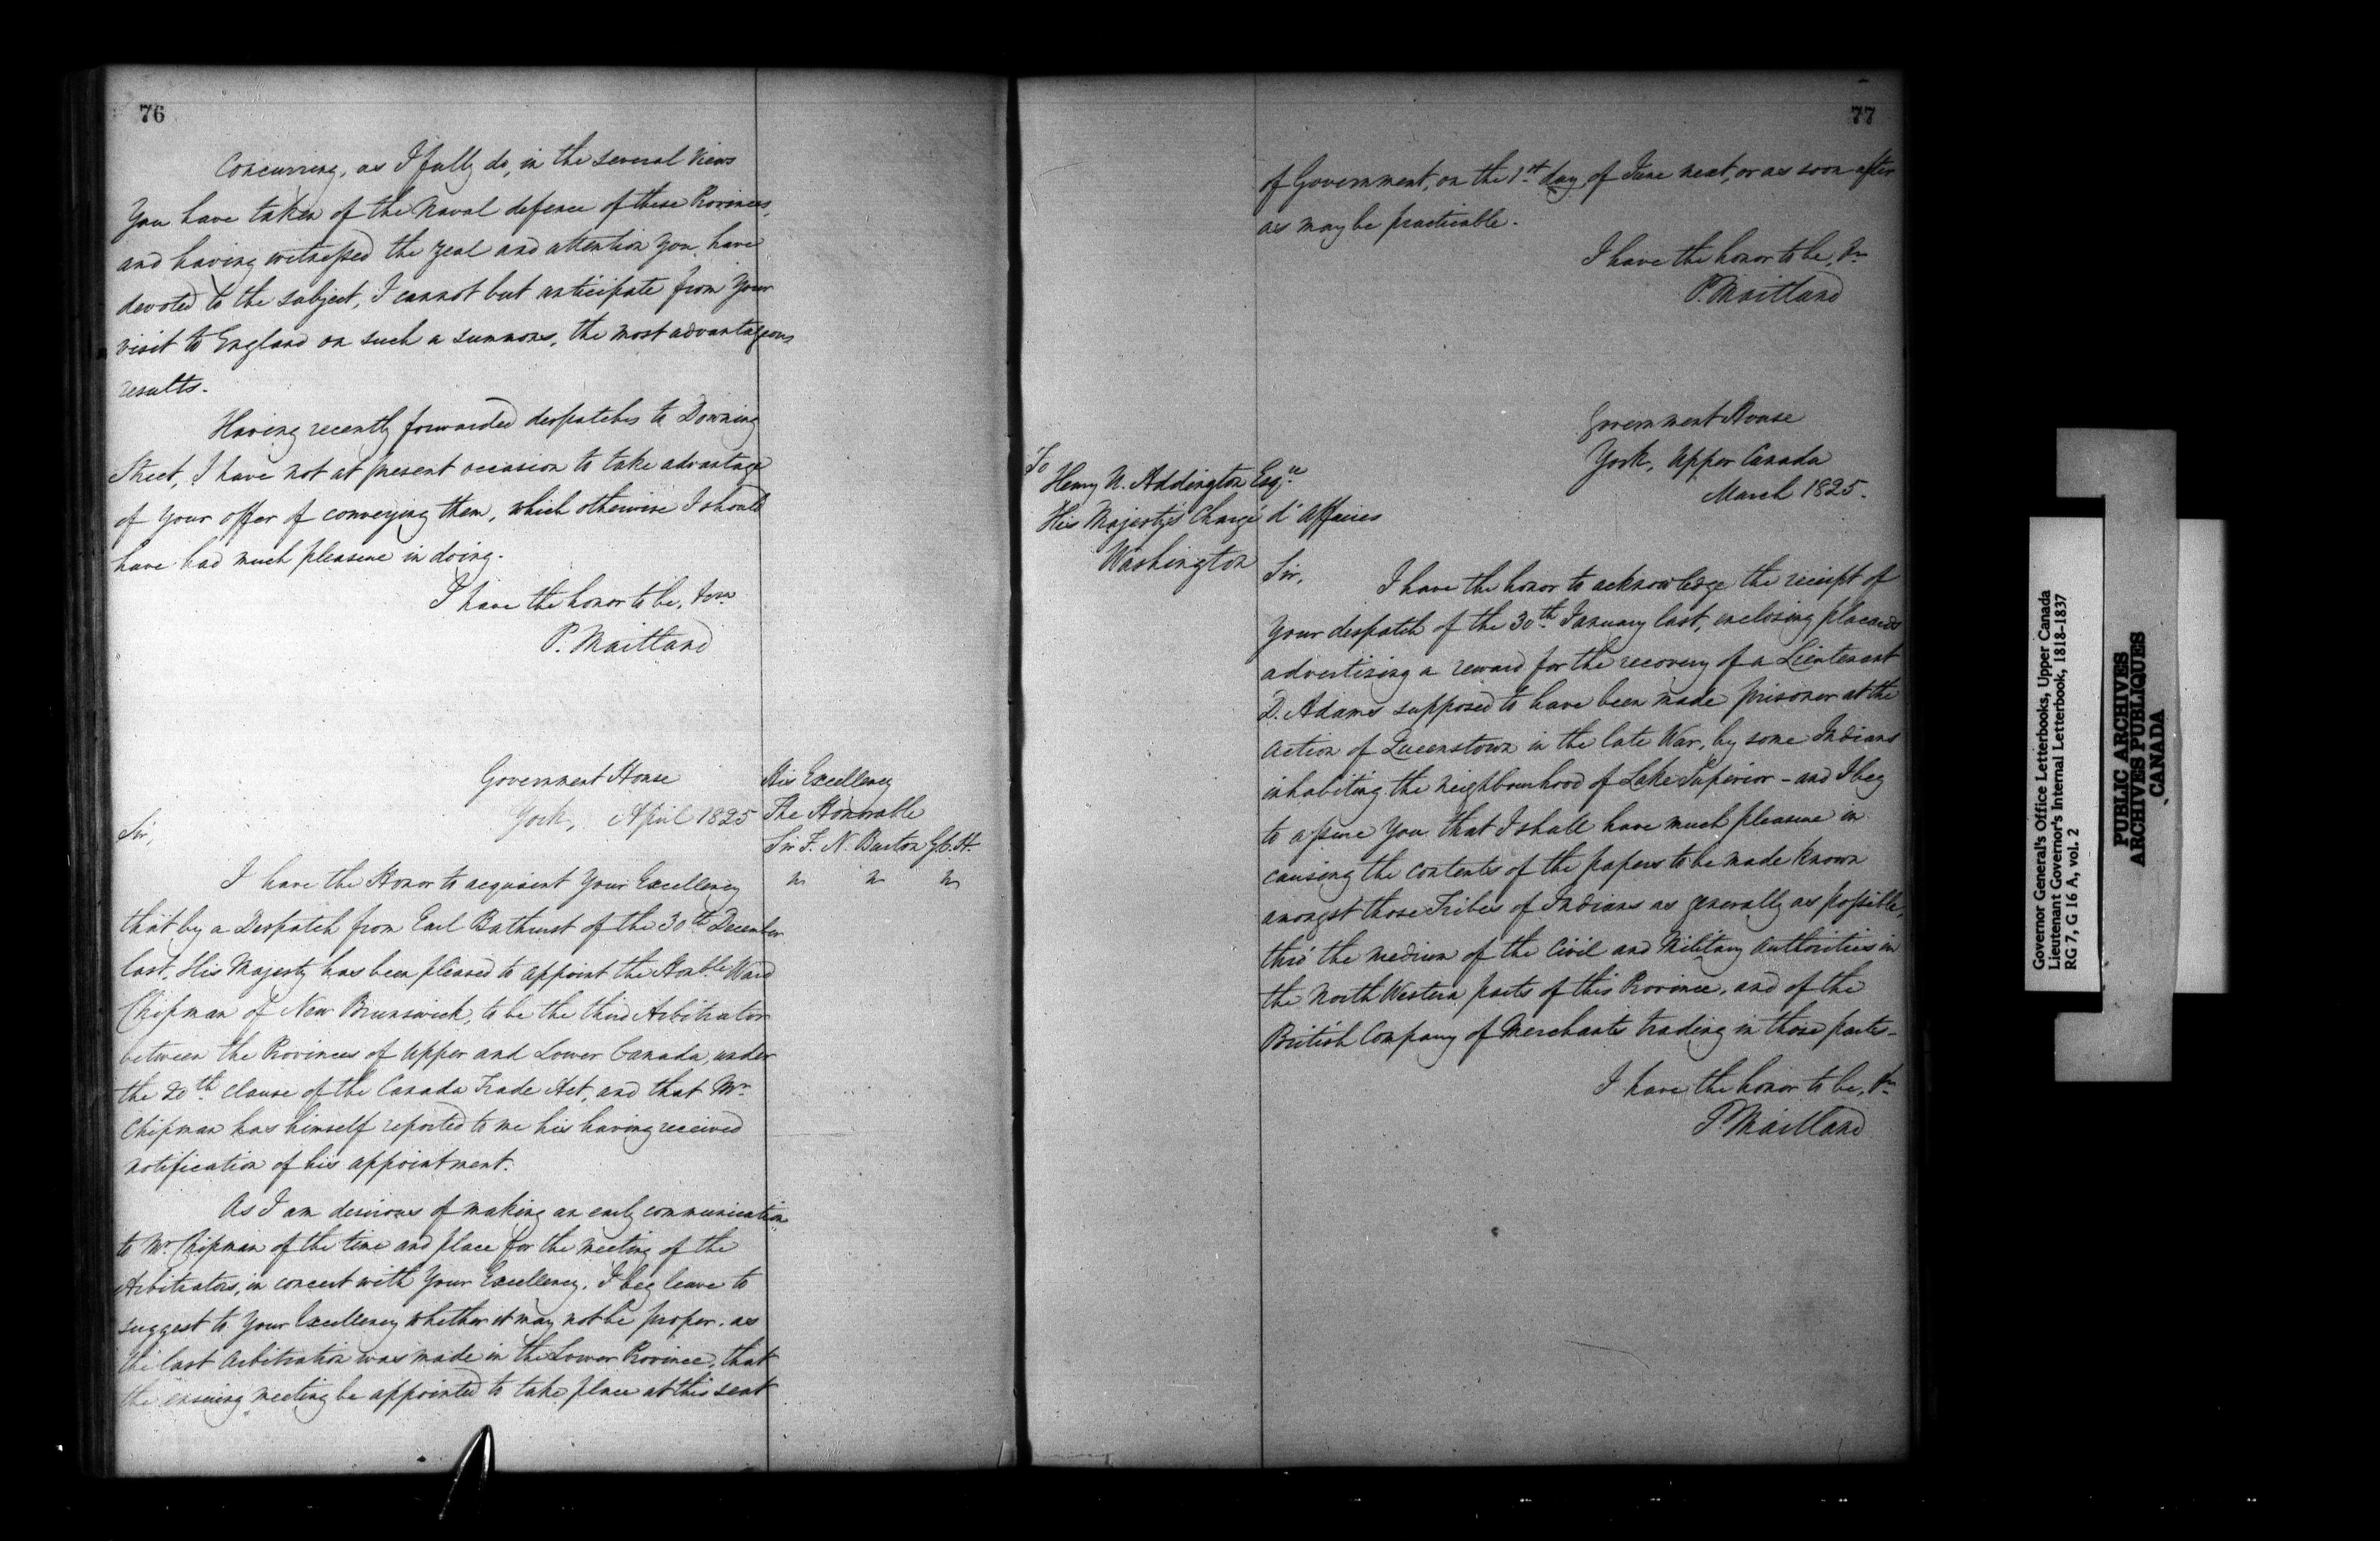 76
Concurring, as I fully do, in the several views
You have taken of the Naval defence of these Provinces,
and having witnessed the zeal and attention you have
devoted to the subject, I cannot but anticipate from your
visit to England on such a summons, the most advantageous
results.
Having recently forwarded despatches to Downing
Street, I have not at present occasion to take advantage
of your offer of conveying them, which otherwise I should
have had much pleasure in doing.
I have the honor to be, &ca
P. Maitland
Government House
York, April 1825
His Excellency
The Honorable
Sir F. N. Burton G.C.H.
Sir,
I have the Honor to acquaint Your Excellency
that by a Despatch from Earl Bathurst of the 30th December
last, His Majesty has been pleased to appoint the Honble Ward
Chipman of New Brunswick, to be the third Arbitrator
between the Provinces of Upper and Lower Canada, under
the 20th Clause of the Canada Trade Act, and that Mr
Chipman has himself reported to me his having received
notification of his appointment.
As I am desirous of making an early communication
to Mr Chipman of the time and place for the meeting of the
Arbitrators, in concert with Your Excellency, I beg leave to
suggest to Your Excellency whether it may not be proper, as
the last Arbitration was made in the Lower Province, that
the ensuing meeting be appointed to take place at this seat
77
of Government, on the 1st day of June next, or as soon after
as may be practicable.
I have the honor to be, &c
P. Maitland
Government House
York, Upper Canada
March 1825.
To
Henry U. Addington Esqre
His Majesty's Chargé d'Affaires
Washington
Sir,
I have the honor to acknowledge the receipt of
Your despatch of the 30th January last, enclosing placards
advertizing a reward for the recovery of a Lieutenant
D. Adams supposed to have been made prisoner at the
action of Queenstown in the late War, by some Indians
inhabiting the neighbourhood of Lake Superior – and I beg
to assure You that I shall have much pleasure in
causing the contents of the papers to be made known
amongst those Tribes of Indians as generally as possible,
thro' the medium of the Civil and Military Authorities in
the North Western parts of this Province, and of the
British Company of Merchants trading in those parts –
I have the honor to be, &c
P Maitland
Governor General's Office Letterbooks, Upper Canada
Lieutenant Governor's Internal Letterbook, 1818-1837
RG 7, G 16 A, vol. 2
PUBLIC ARCHIVES
ARCHIVES PUBLIQUES
CANADA